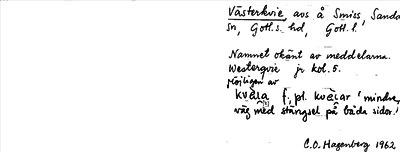 Västerkvie, avs å Smiss, Sanda
sn, Gotl. s. hd, Gotl. l.
Namnet okänt av meddelarna.
Westerqvie jr kol. 5.
Möjligen av
kväia f, pl. kväiar 'mindre,
väg med stängsel på båda sidor.'
C.O. Hagenberg 1962